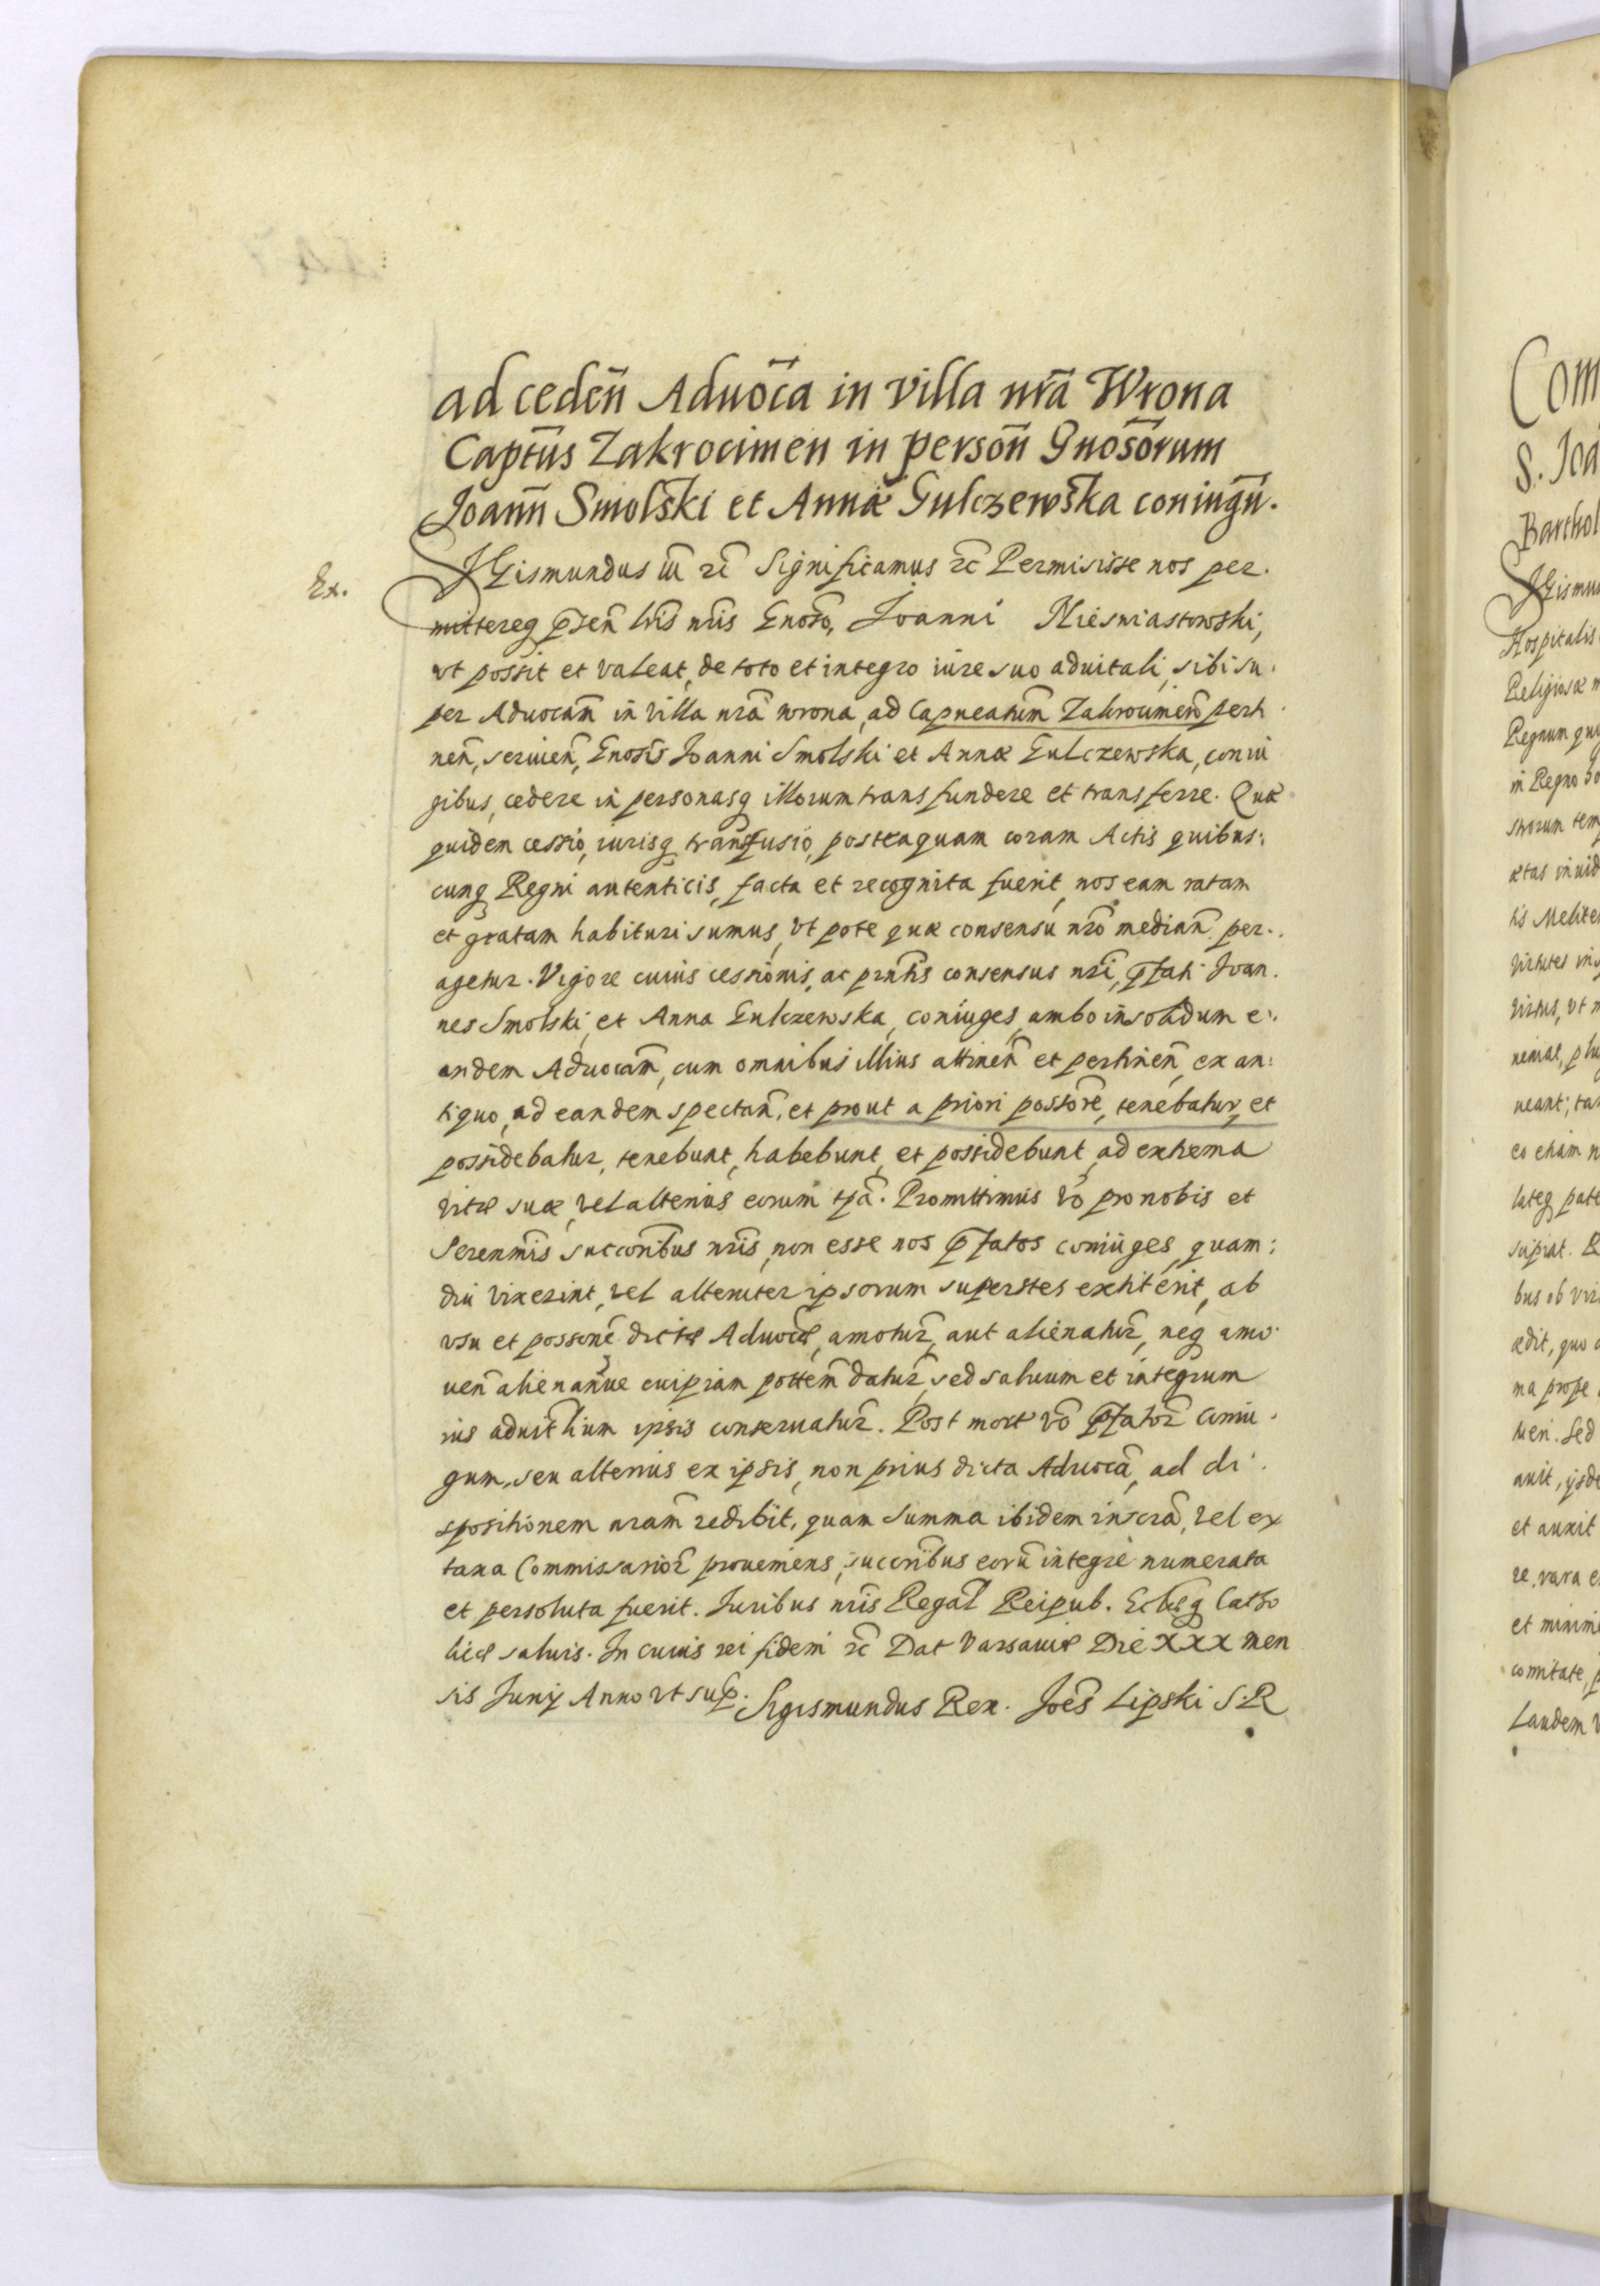 ad ceden̄ Aduoc̄a in villa nr̄a Wrona
Captūs Zakrocimen in person̄ Gnosōrum
Joann̄ Smolski et Annæ Gulczewska coniugn̄.
Ex.
SIGismundus iii rc̄ Significamus rc̄ Permisisse nos per.
mittereq p̄sen̄ lris̄ nris̄ Gnoso, Joanni Niesniastowski,
vt possit et valeat, de toto et integro iure suo aduitali, sibi su.
per Aduocam̄ in villa nrā wrona, ad Capneatum̄ Zakrocimen̄ perti
nen̄, seruien̄, Gnosis̄ Joanni Smolski et Annæ Gulczewska, coniu
gibus, cedere in personasq illorum transfundere et transferre. Quæ
quidem cessio, iurisq transfusio, posteaquam coram Actis quibus:
cunq Regni autenticis, facta et recognita fuerit, nos eam ratam
et gratam habituri sumus, vt pote quæ consensu nrō median̄ per.
agetur. Vigore cuius cessionis, ac prnt̄is consensus nrī, p̄fati Joan.
nes Smolski, et Anna Gulczewska, coniuges, ambo in solidum e:
andem Aduocam̄, cum omnibus illius attinen̄ et pertinen̄, ex an:
tiquo, ad eandem spectan̄, et prout a priori possore̅, tenebatur, et
possidebatur, tenebunt, habebunt, et possidebunt, ad extrema
vitæ suæ, vel alterius eorum tp̄a. Promittimus vō pro nobis et
Serenmis̄ succorib̄us nris̄, non esse nos p̄fatos coniuges, quam:
diu vixerint, vel alteruter ipsorum superstes extiterit, ab
vsu et possone̅ dictæ Aduocǣ, amotur̄, aut alienatur̄, neq amo
uen̄ alienan̄ue cuipiam pottem̄ datur̄, sed saluum et integrum
ius aduit̄lium ipsis conseruatur̄. Post mort vō p̄fator̄ coniu.
gum, seu alterius ex ipsis, non prius dicta Aduocā, ad di.
spositionem nram̄ redibit, quam Summa ibidem inscrā, vel ex
taxa Commissarior̄ proueniens, succorib̄us eorū integre numerata
et persoluta fuerit. Juribus nris̄ Regal̄ Reipub. Eclīæq Catho
licæ saluis. In cuius rei fidem rc̄ Dat Varsauiæ Die XXX men
sis Junij Anno vt sup̄. Sigismundus Rex. Joēs Lipski S.R
Com
S. Joa
Barthol
Hospitalis
Religiosæ
in Regno
Laudem